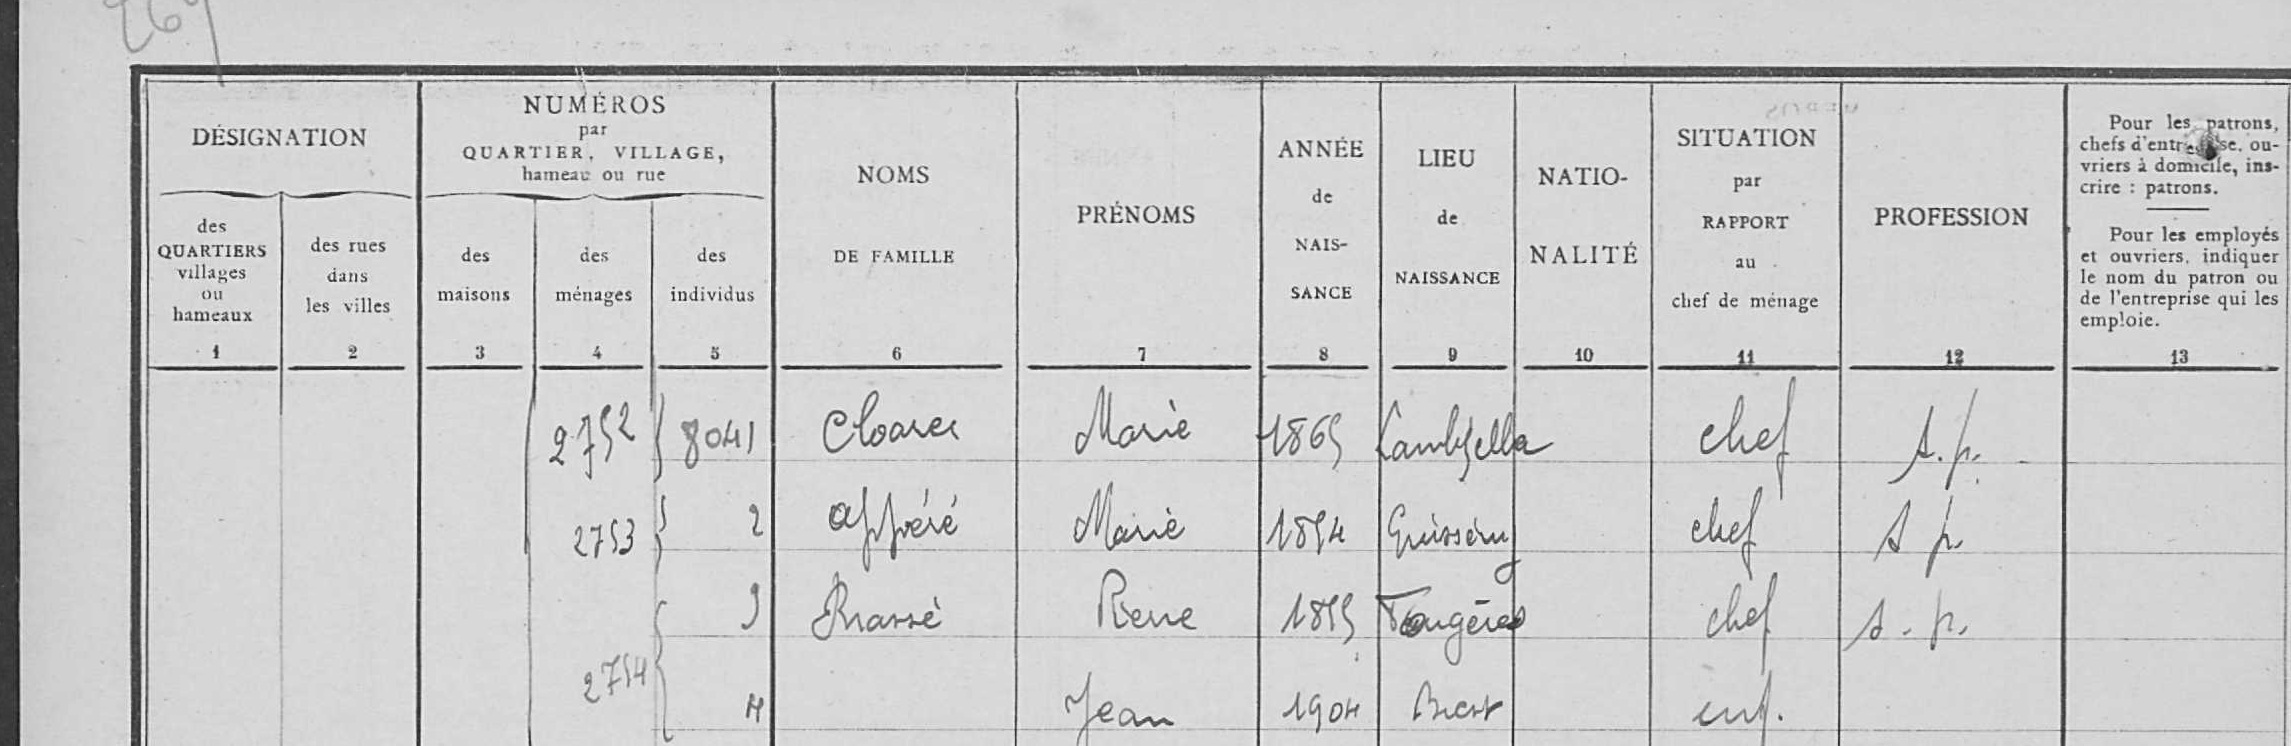 DÉSIGNATION
des
QUARTIERS
villages
ou
hameaux
1
des rues
dans
les villes
2
NUMÉROS
par
QUARTIER, VILLAGE,
hameau ou rue
des
maisons
3
des
ménages
4
des
individus
5
NOMS
DE FAMILLE
6
PRÉNOMS
7
ANNÉE
de
NAIS-
SANCE
8
LIEU
de
NAISSANCE
9
NATIO-
NALITÉ
10
SITUATION
par
RAPPORT
au
chef de ménage
11
PROFESSION
12
Pour les patrons,
chefs d'entreprise, ou-
vriers à domicile, ins-
crire : patrons.
Pour les employés
et ouvriers, indiquer
le nom du patron ou
de l'entreprise qui les
emploie.
13
2752 8041 Cloarec Marie 1865 Lambzella chef s.p.
2753 2 Appéré Marie 1854 Guissény chef s p.
3 Rene Fougères chef s.p.
2754 4 Jean 1904 Brest enf.